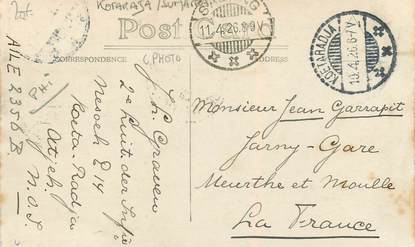 KOTARASA / SUMATRA
Post Card
CORRESPONDENCE
C. PHOTO
11.4.26.8-9
KOETARADJA
10.4.26.6-7V
AILE 2356 B.
J. L. Graven
2e Luit. der Inf.
Neusoeh 214
Kota-Radja
Atjeh.
N.O.I.
Monsieur Jean Garrapit
Jarny-Gare
Meurthe et Moulle
La France